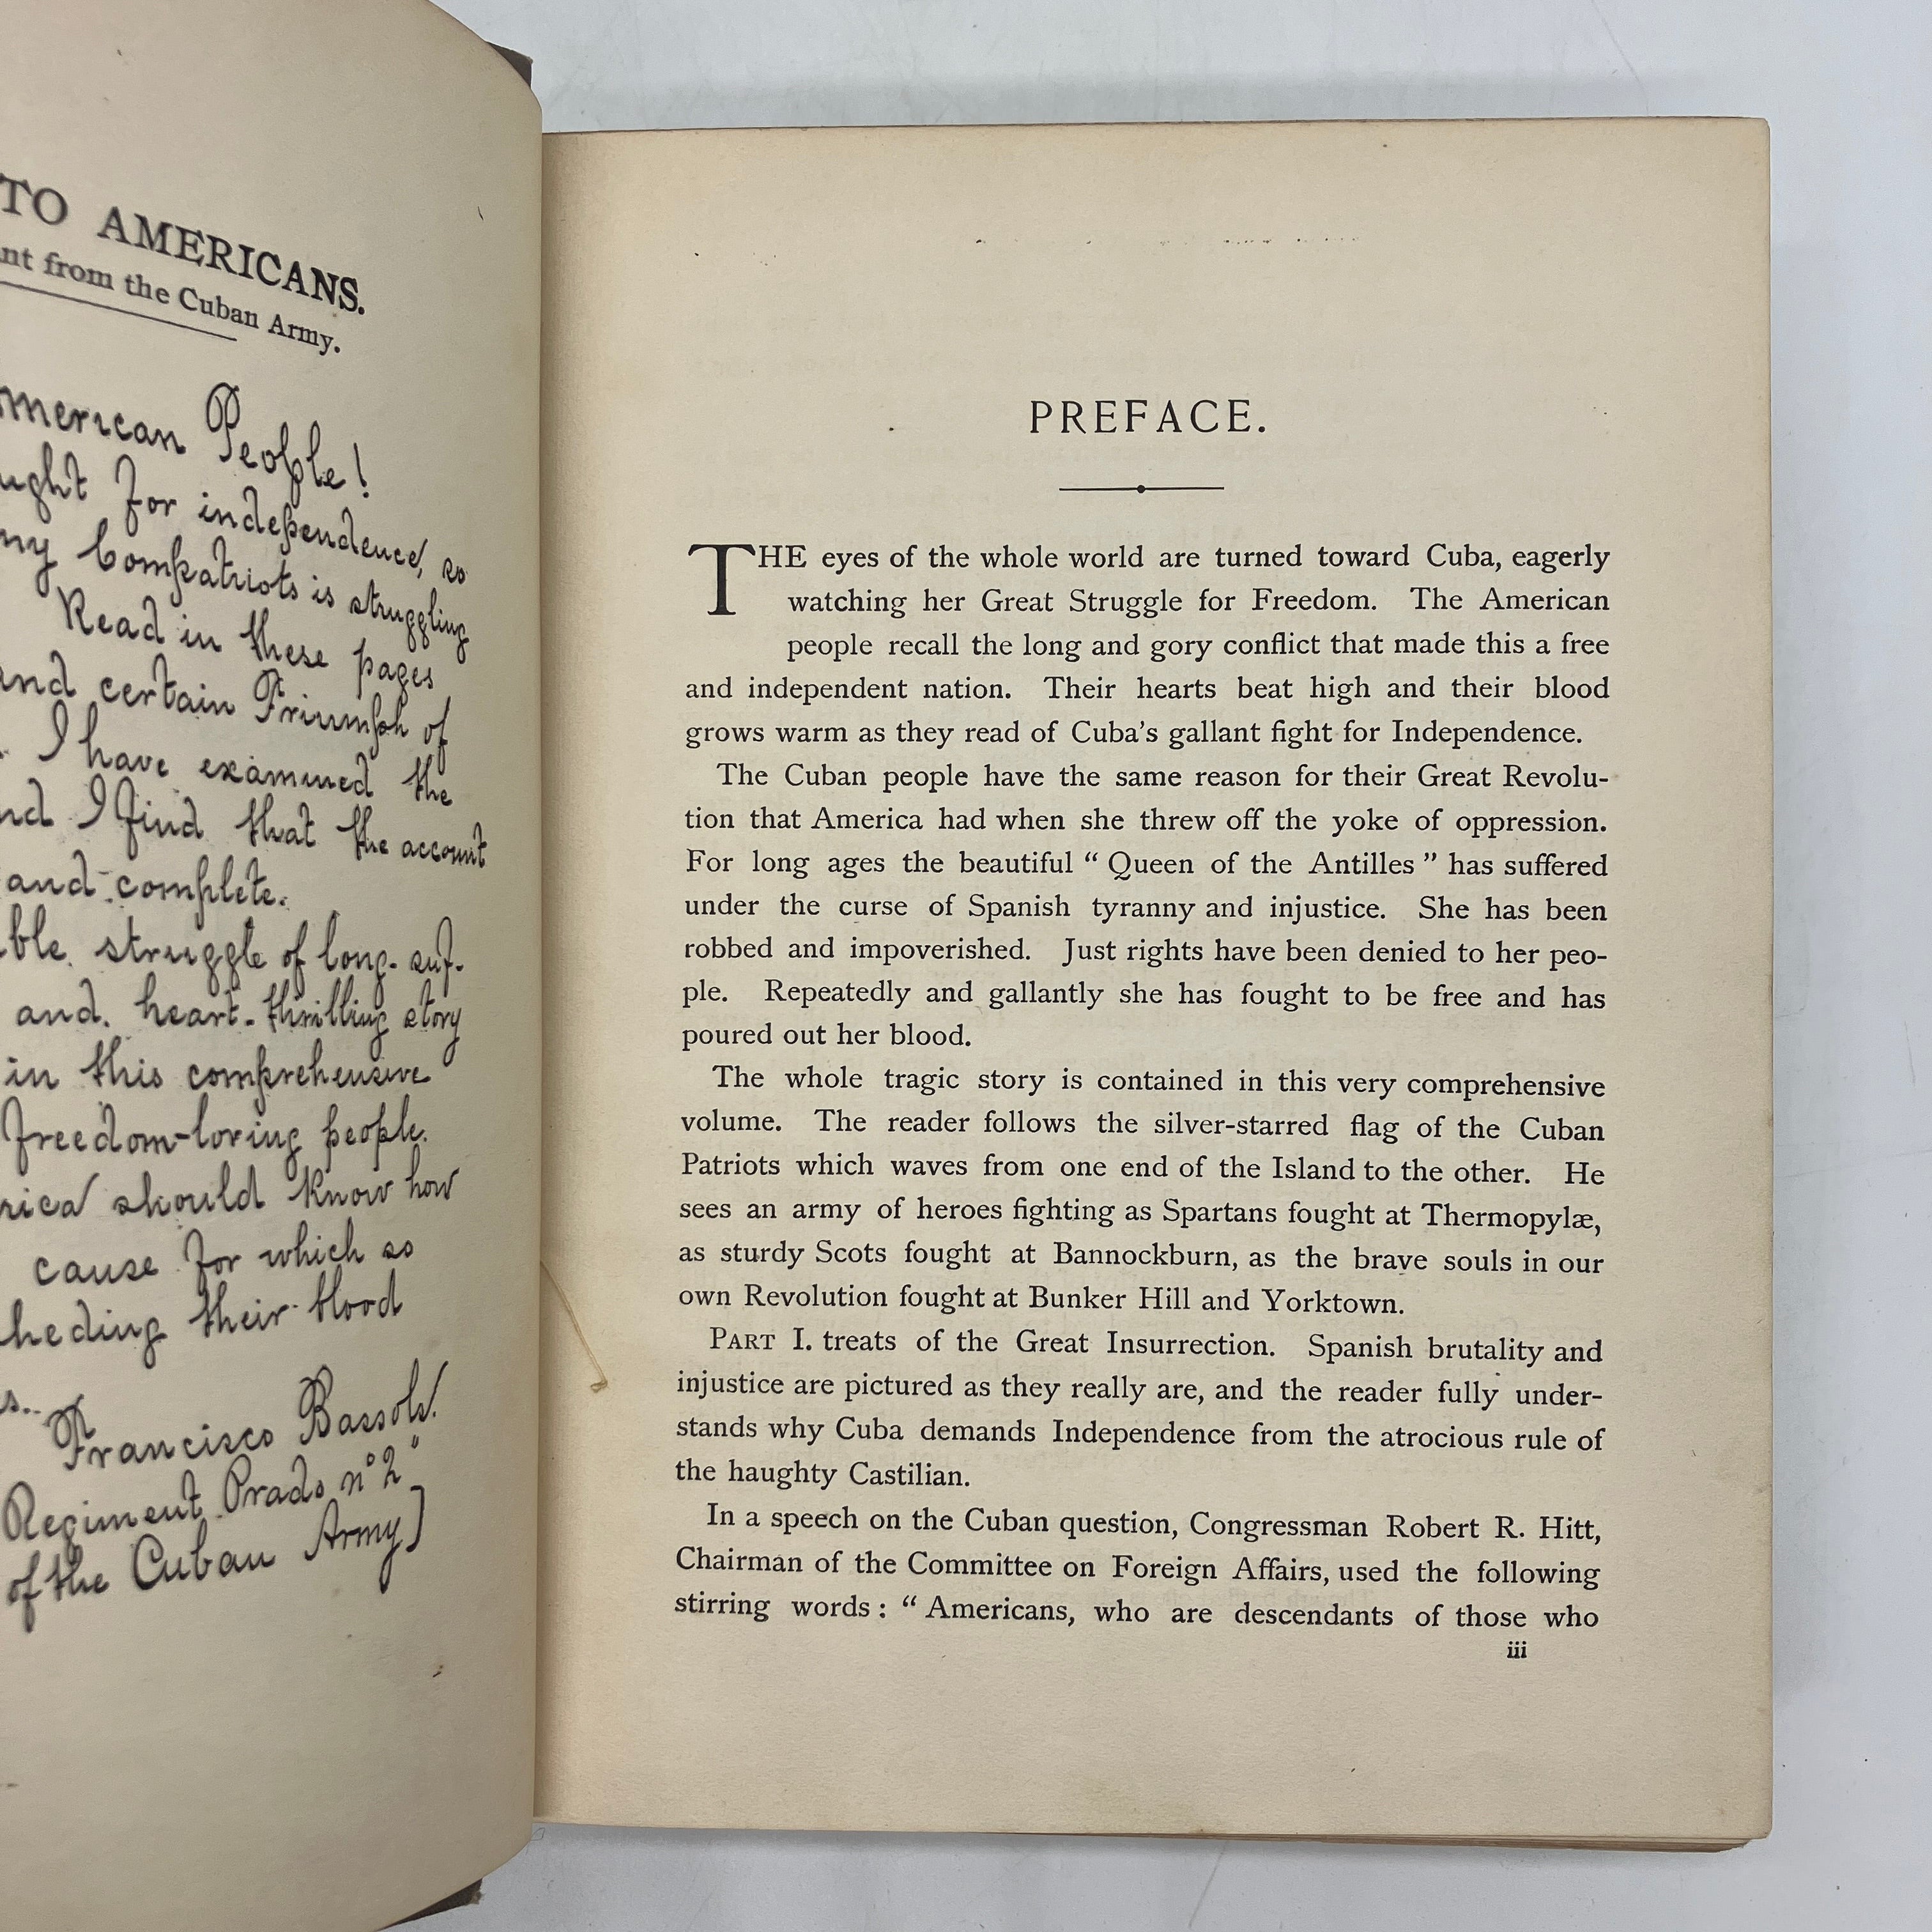 TO AMERICANS.
nt from the Cuban Army.
merican People!
ught for independence, so
my Compatriots is struggling
Read in these pages
and certain Triumph of
I have examined the
nd I find that the account
and complete.
ble struggle of long-suf-
and heart-thrilling story
in this comprehensive
freedom-loving people.
rica should know how
cause for which so
heding their blood
s.
Francisco Bassols.
Regiment Prado nº 2"
of the Cuban Army]
PREFACE.
THE eyes of the whole world are turned toward Cuba, eagerly
watching her Great Struggle for Freedom. The American
people recall the long and gory conflict that made this a free
and independent nation. Their hearts beat high and their blood
grows warm as they read of Cuba's gallant fight for Independence.
The Cuban people have the same reason for their Great Revolu-
tion that America had when she threw off the yoke of oppression.
For long ages the beautiful "Queen of the Antilles" has suffered
under the curse of Spanish tyranny and injustice. She has been
robbed and impoverished. Just rights have been denied to her peo-
ple. Repeatedly and gallantly she has fought to be free and has
poured out her blood.
The whole tragic story is contained in this very comprehensive
volume. The reader follows the silver-starred flag of the Cuban
Patriots which waves from one end of the Island to the other. He
sees an army of heroes fighting as Spartans fought at Thermopylæ,
as sturdy Scots fought at Bannockburn, as the brave souls in our
own Revolution fought at Bunker Hill and Yorktown.
PART I. treats of the Great Insurrection. Spanish brutality and
injustice are pictured as they really are, and the reader fully under-
stands why Cuba demands Independence from the atrocious rule of
the haughty Castilian.
In a speech on the Cuban question, Congressman Robert R. Hitt,
Chairman of the Committee on Foreign Affairs, used the following
stirring words: "Americans, who are descendants of those who
iii